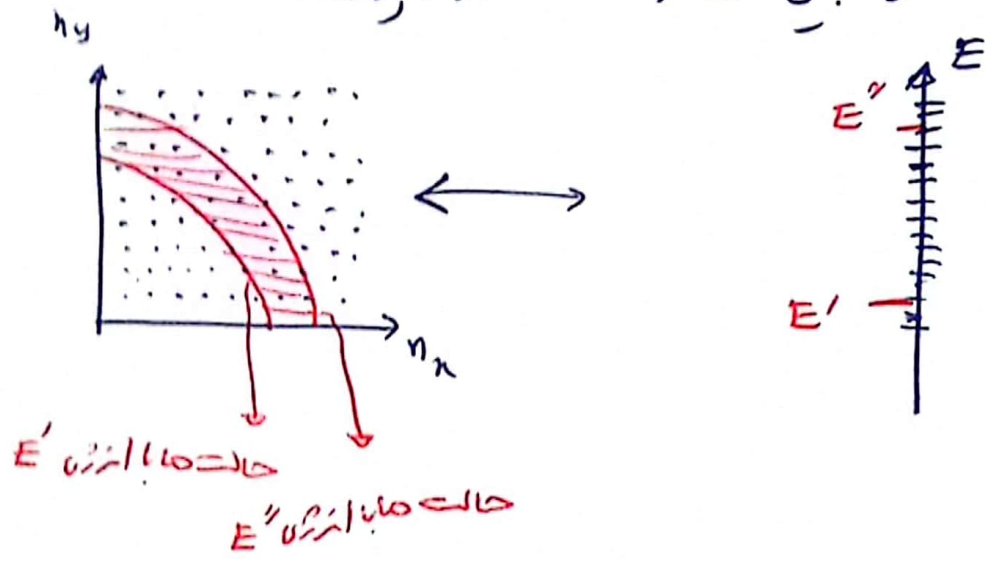 ny
E
E″
E′
nx
حالت‌ها با انرژی E′
حالت‌ها با انرژی E″